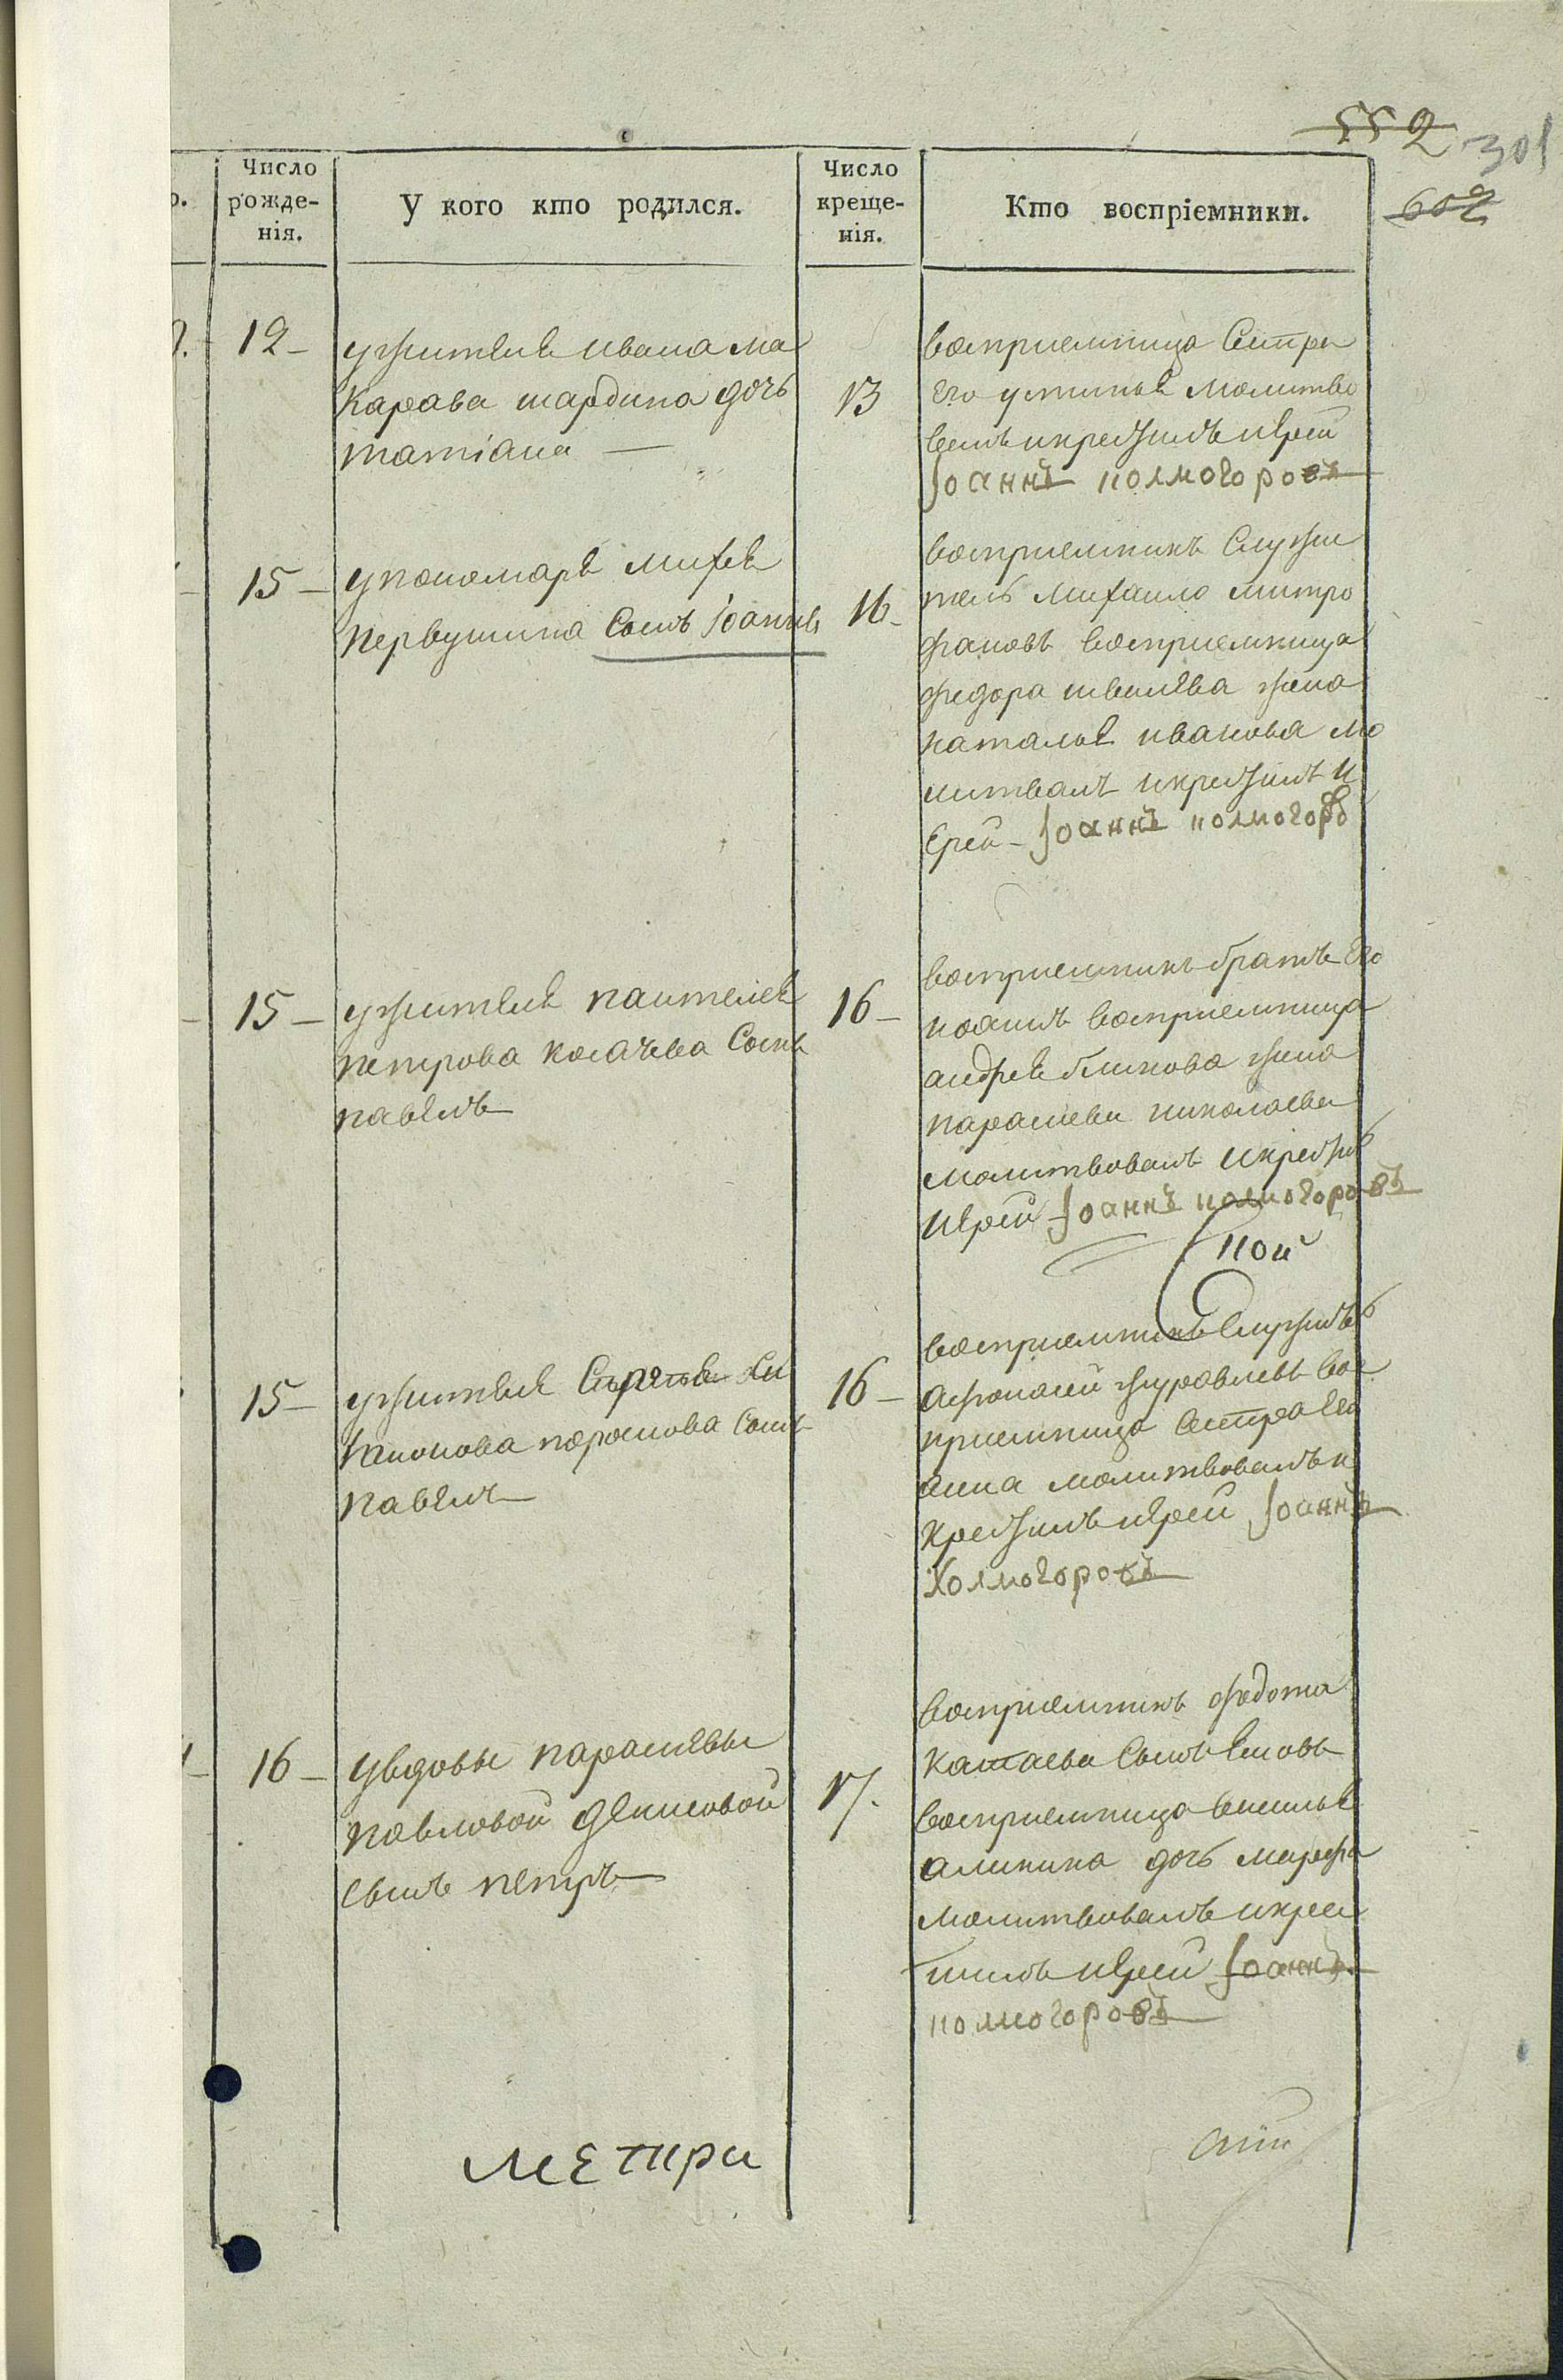 552
301
602
Число рожде-нія.
У кого кто родился.
Число креще-нія.
Кто воспріемники.
12
ужителя ивана ма
карава шардина дочь
татіана
13
восприемница Сестра
его устинья молитво
валъ икрестилъ иерей
Іоаннъ холмогоровъ
15
упономаря михея
первушина Сынъ Іоаннъ
16
восприемникъ Служи
тель Михаило митро
фановъ восприемница
федора жена
наталья иванова мо
литвалъ икрестилъ и
ерей Іоаннъ холмогоро
15
ужителя пантелея
петрова косачева Сынъ
павелъ
16
восприемникъ братъ Его
иоаннъ восприемница
андрея блинова жена
парасиева николаева
молитвовалъ икрестилъ
иерей Іоаннъ холмогоровъ
ной
15
ужителя Сергея
Сынъ
павелъ
16
восприемникъ
афонасей журавлевъ вос
приемница Сестра Его
анна молитвовалъ и
крестилъ иерей Іоаннъ
Холмогоровъ
16
увдовы парасневы
павловой денисовой
Сынъ петръ
17
восприемникъ федота
катаева Сынъ
восприемница василья
аликина дочь марфа
молитвовалъ икрес
тилъ иерей Іоаннъ
холмогоровъ
метри